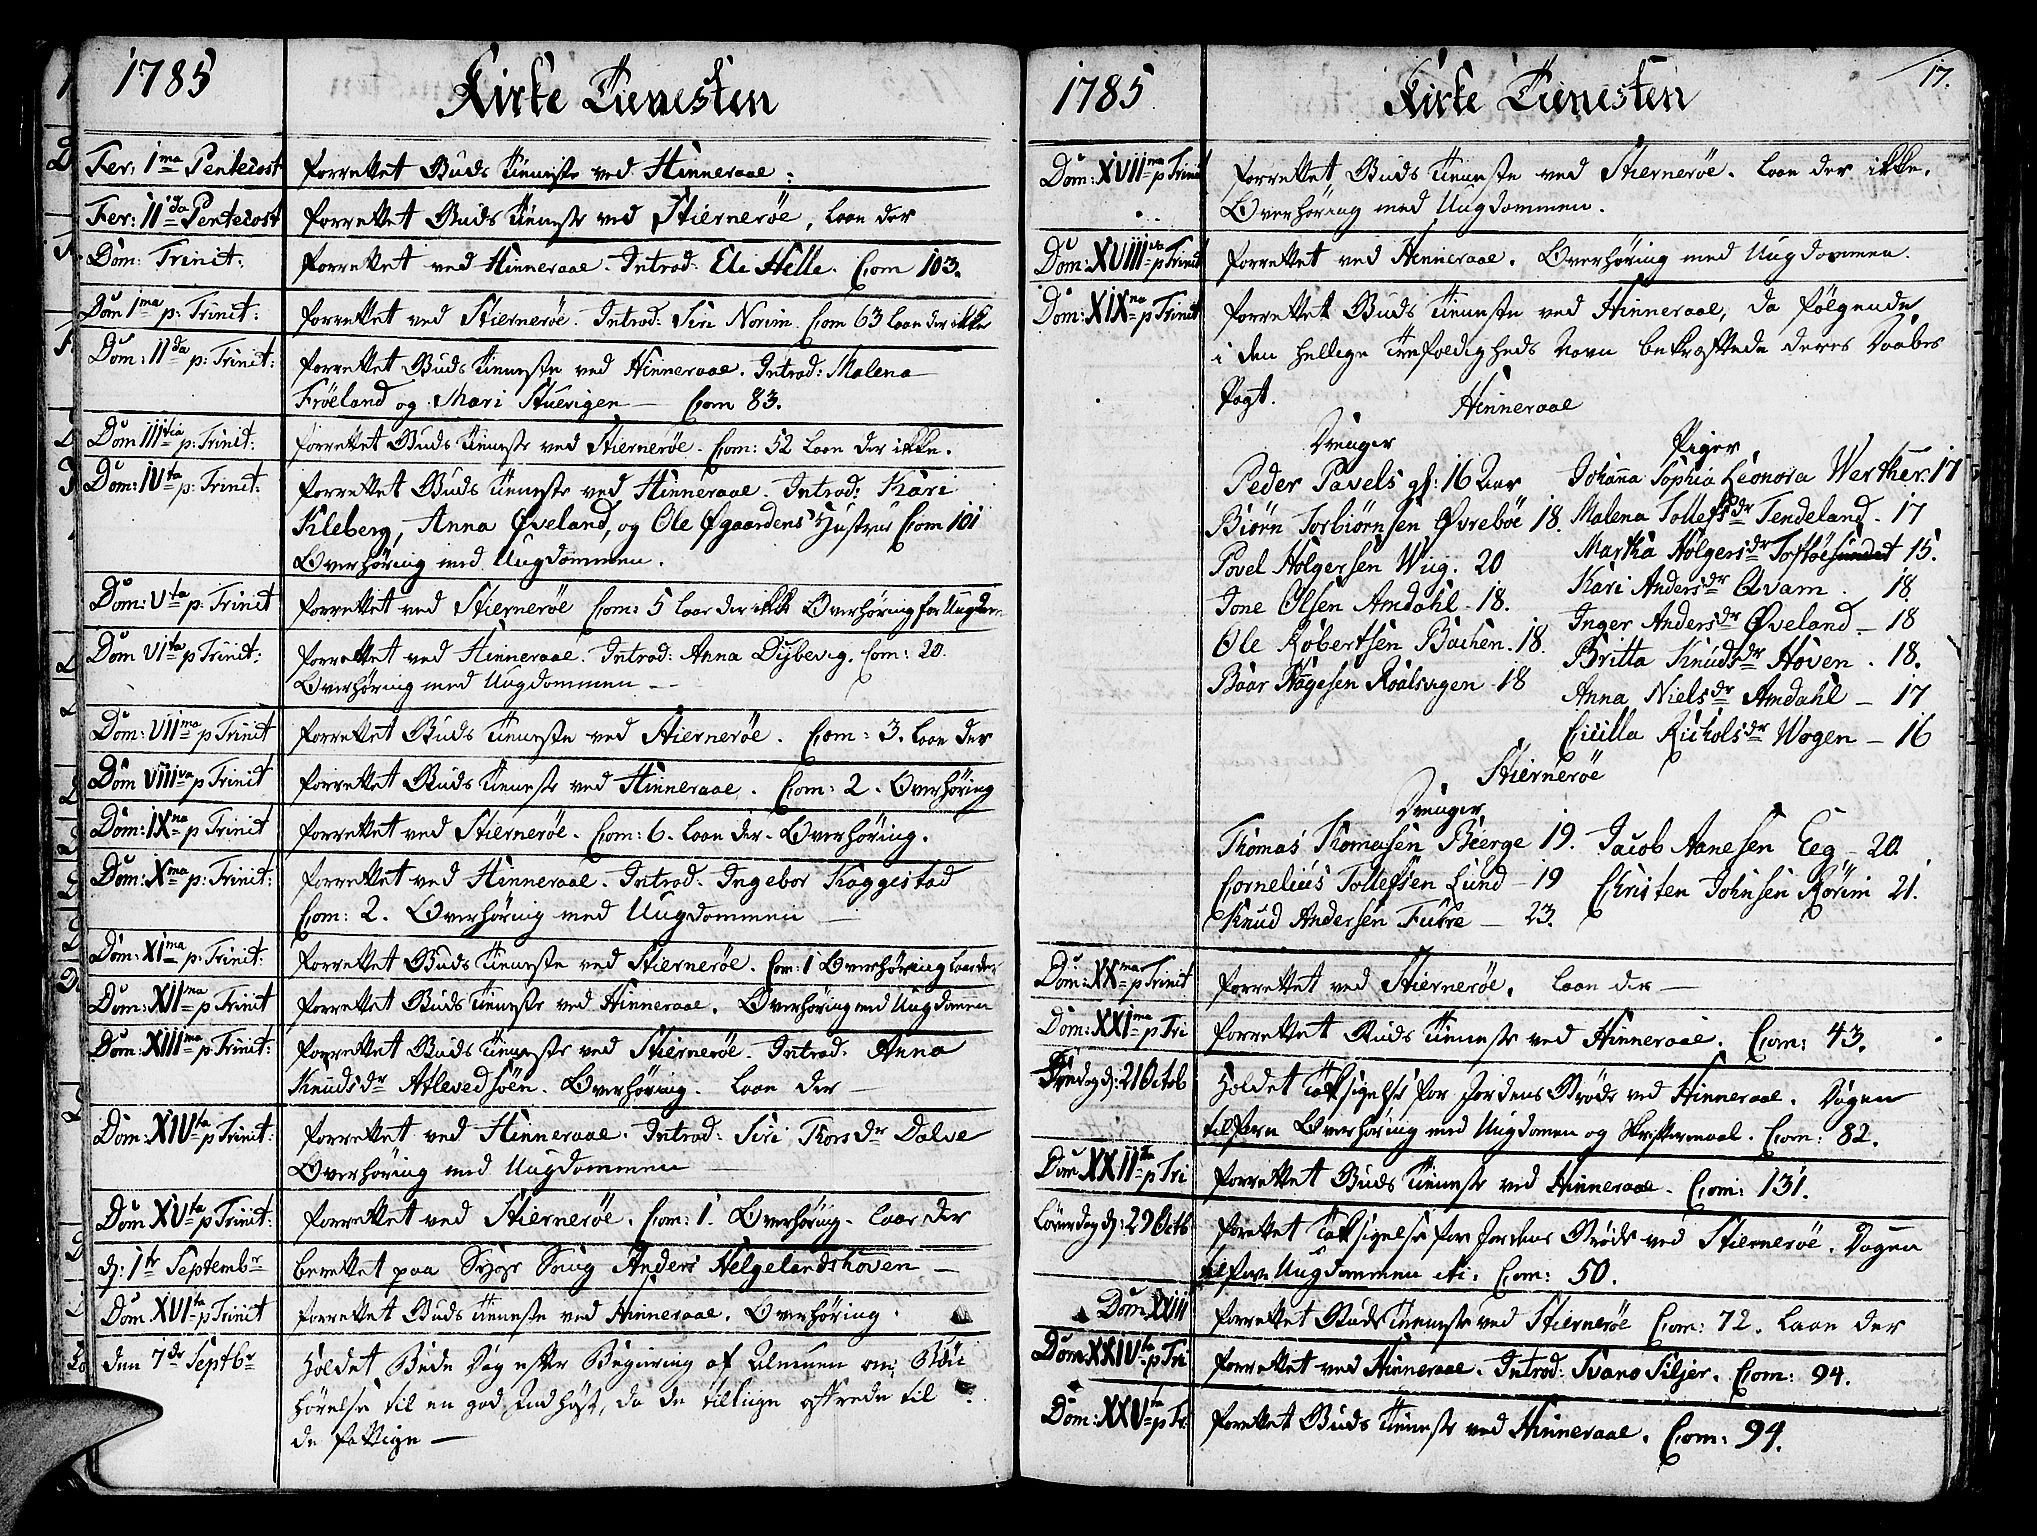 1785 Kirke Tienesten
Fer: 1ma Pentecost forrettet Guds Tieneste ved Hinneraae.
Fer: IIda Pentecost forrettet Guds Tieneste ved Stiernerøe, laae der
Dom: Trinit: forrettet ved Hinneraae. Introd: Eli Helle. Com 103.
Dom 1ma p: Trinit: forrettet ved Stiernerøe. Introd: Siri Norim. Com 63 laae der ikke
Dom: IIda p: Trinit: forrettet Guds Tieneste ved Hinneraae. Introd: Malena
Frøeland og Mari Stuevigen — Com 83.
Dom IIItia p: Trinit: forrettet Guds Tieneste ved Stiernerøe. Com: 52 laae der ikke.
Dom: IVta p: Trinit: forrettet Guds Tieneste ved Hinneraae. Introd: Kari
Kleberg, Anna Øveland, og Ole Øgaardens Hustrue Com 101
Overhøring med Ungdommen.
Dom: Vta p: Trinit forrettet ved Stiernerøe Com: 5 laae der ikke Overhøring for Ungdom
Dom VIta p Trinit: forrettet ved Hinneraae. Introd: Anna Dybevig. Com: 20.
Overhøring med Ungdommen —
Dom: VIIma p Trinit forrettet Guds Tieneste ved Stiernerøe. Com: 3. laae der
Dom VIIIva p Trinit forrettet Guds Tieneste ved Hinneraae. Com: 2. Overhøring
Dom: IXna p Trinit forrettet ved Stiernerøe. Com: 6. laae der. Overhøring.
Dom: Xma p: Trinit: forrettet ved Hinneraae. Introd. Ingebor Kaggestad
Com: 2. Overhøring med Ungdommen —
Dom: XIma p: Trinit: forrettet Guds Tieneste ved Stiernerøe. Com: 1 Overhøring laae der
Dom: XIIma p Trinit forrettet Guds Tieneste ved Hinneraae. Overhøring med Ungdomen
Dom: XIIIma p Trinit: forrettet Guds Tieneste ved Stiernerøe. Introd. Anna
Knudsdr Atlevedsøen. Overhøring. laae der —
Dom: XIVta p Trinit: forrettet ved Hinneraae. Introd: Siri Thorsdr Dalve
Overhøring med Ungdommen —
Dom XVta p Trinit: forrettet ved Stiernerøe. Com: 1. Overhøring. laae der
d: 1te Septembr berettet paa Syge Seng Anders Helgelandshoven —
Dom XVIta p Trinit forrettet Guds Tieneste ved Hinneraae. Overhøring.
den 7de Septbr Holdet Bede Dag efter Begiering af Almuen om Bøn
hørelse til en god Indhøst, da de tillige offrede til
de fattige —
1785 Kirke Tienesten 17.
Dom: XVIIma p Trinit forrettet Guds Tieneste ved Stiernerøe. laae der ikke.
Overhøring med Ungdommen.
Dom: XVIIIva p Trinit forrettet ved Hinneraae. Overhøring med Ungdommen.
Dom: XIXna p Trinit forrettet Guds Tieneste ved Hinneraae, da følgende,
i den hellige Treefoldigheds Navn bekræftede deres Daabes
Pagt. Hinneraae
Drenge Piger
Peder Pavels gl: 16 Aar Johanna Sophia Leonora Werther. 17
Biørn Torbiørnsen Øvrebøe 18. Malena Tollefsdr Tendeland. 17
Povel Holgersen Wiig. 20 Martha Holgersdr Toftøesundet 15.
Jone Olsen Amdahl. 18. Kari Andersdr Qvam. 18.
Ole Robertsen Bachen. 18. Inger Andersdr Øveland. 18
Baar Aagesen Roalsvigen 18 Britta Knudsdr Hoven. 18.
Anna Nielsdr Amdahl — 17
Cicilla Richolsdr Wogen — 16
Stiernerøe
Drenger
Thomas Thomasen Bierge 19. Jacob Aanesen Eeg — 20.
Cornelius Tollefsen Lund — 19 Christen Johnsen Rørim 21.
Knud Andersen Furre — 23.
Dom: XXma p Trinit forrettet ved Stiernerøe. laae der —
Dom: XXIma p Tri forrettet Guds Tieneste ved Hinneraae. Com: 43.
Fredag d: 21 Octob Holdet Taksigelse for Jordens Grøde ved Hinneraae. Dagen
tilforn Overhøring med Ungdomen og Skriftemaal. Com: 82.
Dom XXIIda p Tri forrettet Guds Tieneste ved Hinneraae. Com: 131.
Løverdag d: 29 Octb forrettet Taksigelse for Jordens Grøde ved Stiernerøe. Dagen
tilforn Ungdommen etc. Com: 50.
Dom XXIII forrettet Guds Tieneste ved Stiernerøe Com: 72. laae der
Dom: XXIVta p Tri forrettet ved Hinneraae. Introd: Svans Siljer. Com: 94.
Dom: XXVta p Tr: forrettet Guds Tieneste ved Hinneraae. Com: 94.